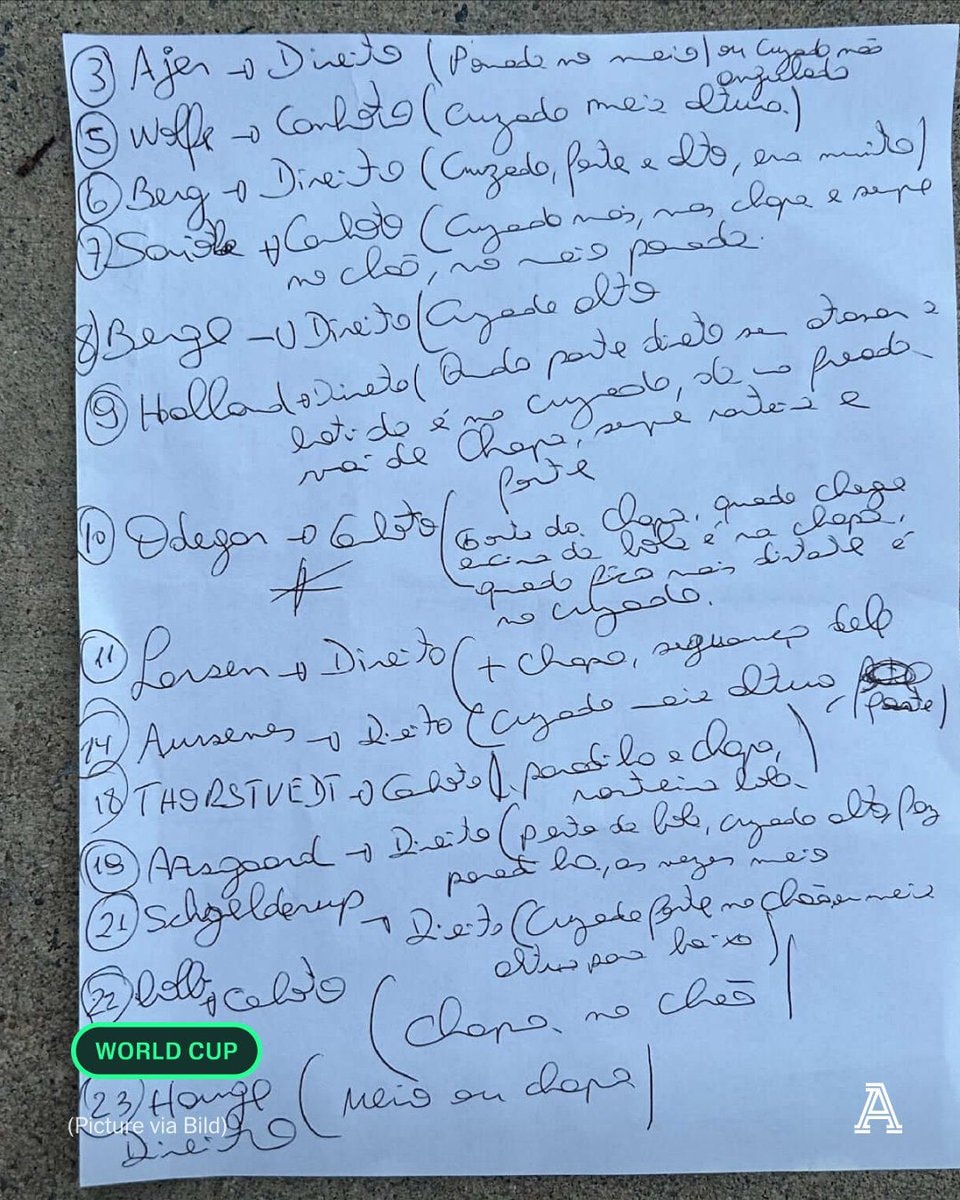 3 Ajer → Direito (Parada no meio) ou cruzado não
angulado
5 Wolfe → Canhoto (Cruzado meia altura.)
6 Berg → Direito (Cruzado, forte e alto, erra muito)
7 → Canhoto (Cruzado mas, na chapa e sempre
no chão, no meio parada.
8) Berge → Direito (Cruzado alto
9 Holland → Direito ( Quando parte direto sem atrasar a
batida é no cruzado, se
vai de chapa, sempre rasteira e
forte
10 Odegar → Canhoto ( chapa, quando chega
bola é na chapa,
quando fica mais distante é
no cruzado.
11 Larsen → Direito (+ chapa, segurança
14 Aursenes → Direito (Cruzado meia altura
(forte)
18 THORSTVEDT → Canhoto ( paradinha e chapa,
rasteira bola.
19 Aasgaard → Direito (perto da bola, cruzado alto, faz
paradinha, as vezes meio
21 Schjelderup → Direito (Cruzado forte no chão ou meia
altura para baixo)
22 → Canhoto (Chapa no chão)
WORLD CUP
(23) Hauge (Meio ou chapa)
(Picture via Bild)
Direito
A